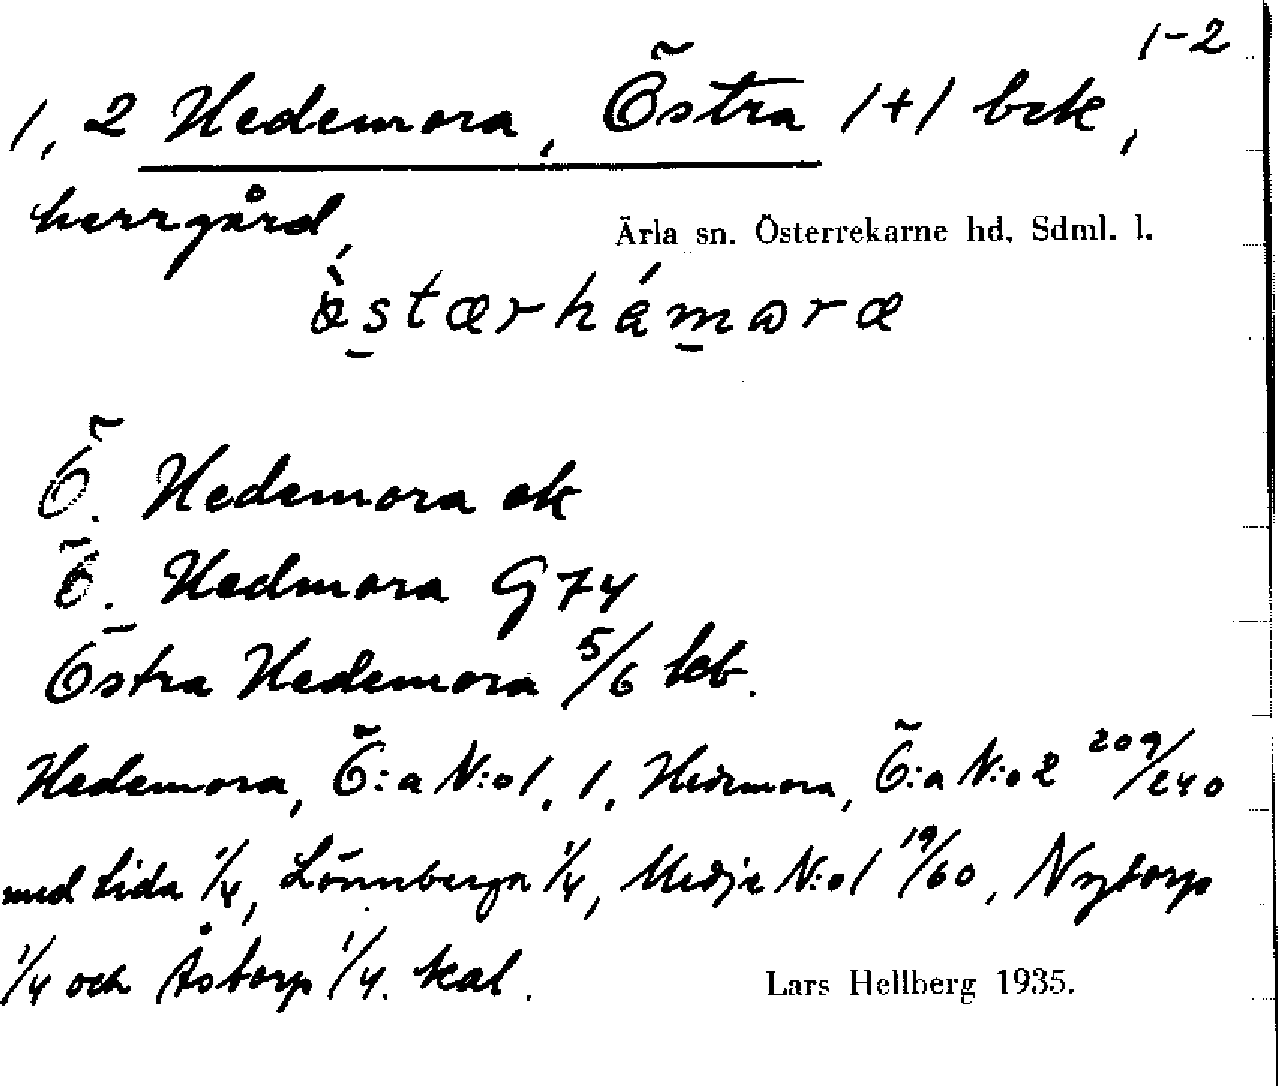 1-2
1, 2 Hedemora, Östra 1+1 bck,
herrgård,
Ärla sn. Österrekarne hd, Sdml. l.
Ö. Hedemora ek
Ö. Hedmora G 74
Östra Hedemora 5/6 kb.
Hedemora, Ö:a N:o 1, 1, Hedemora, Ö:a N:o 2 209/240
med Lida 1/4, Lönnberga 1/4, Medja N:o 1 19/60, Nytorp
1/4 och Åstorp 1/4. kal.
Lars Hellberg 1935.